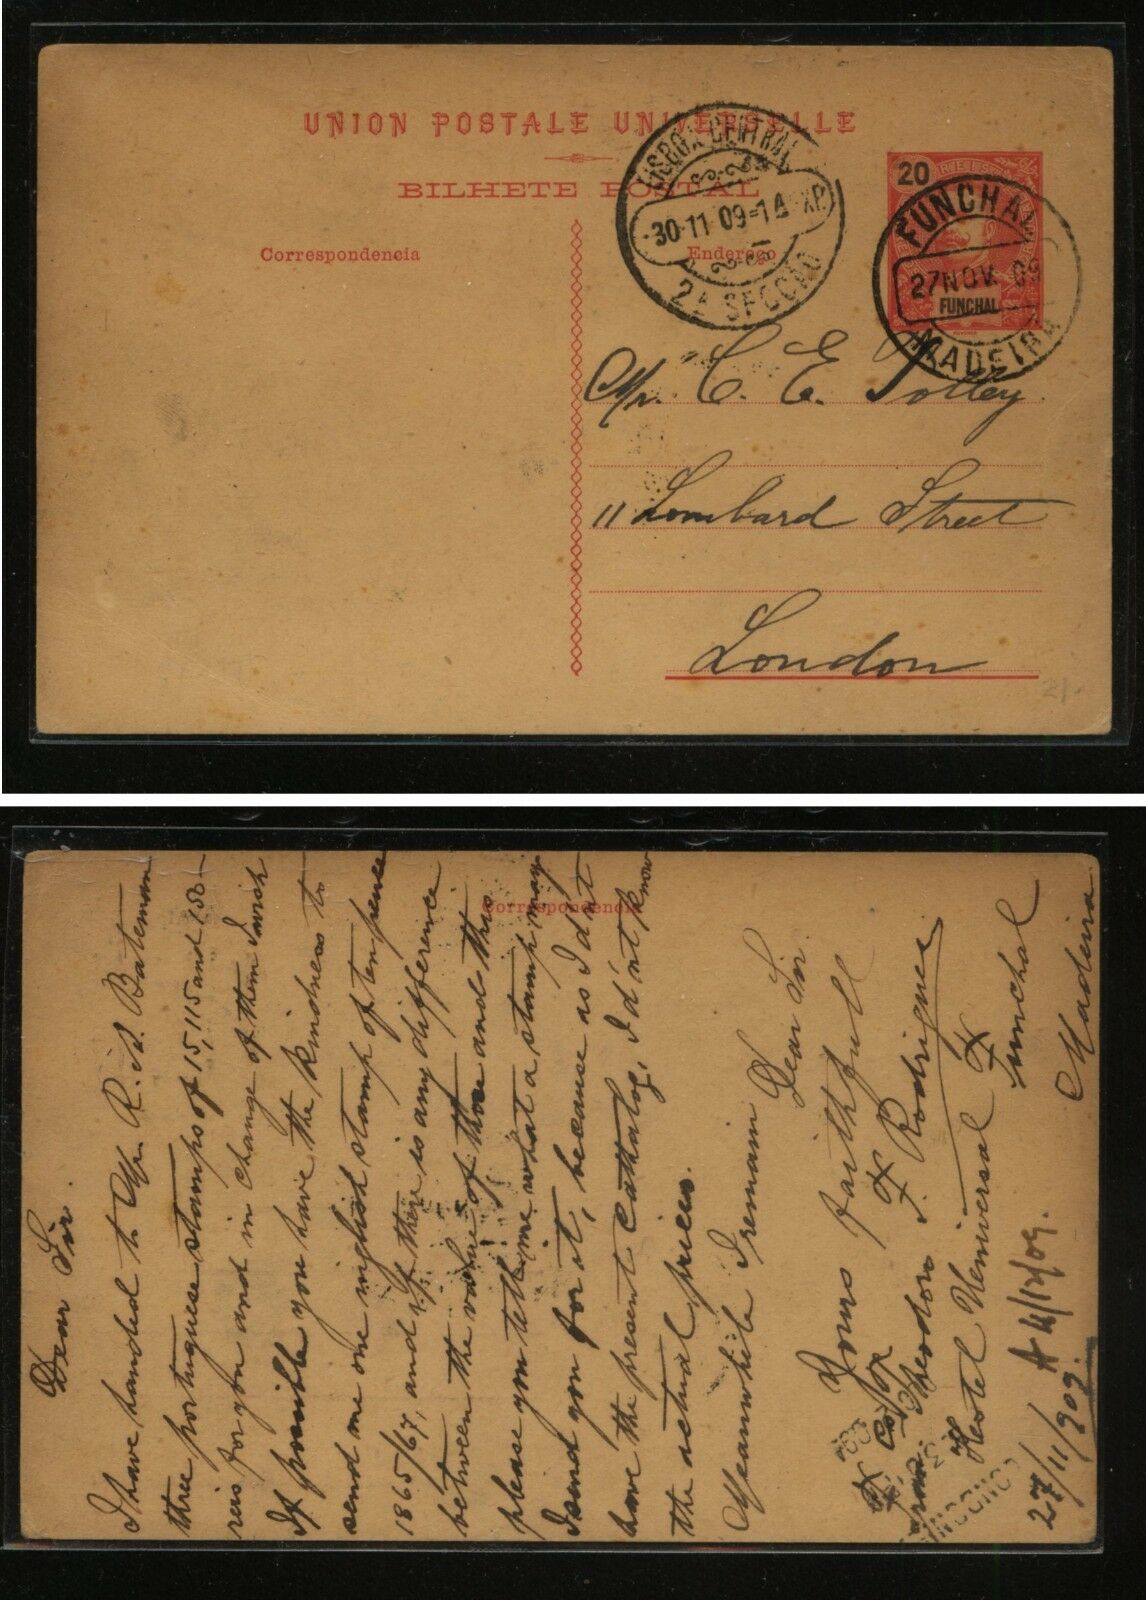 UNION POSTALE UNIVERSELLE
BILHETE POSTAL
Correspondencia
Endereço
LISBOA CENTRAL
30-11 09-1
2A SECCÃO
20
REIS
FUNCHAL
27 NOV. 09
FUNCHAL
MADEIRA
Mr. C. E. Tolley.
11 Lombard Street
London
21
Correspondencia
Dear Sir.
I have handed to Mr. R. A. Bateman
three portuguese stamps of 15, 115 and 150
reis for you and in change of them I wish
If possible you have the kindness to
send me one inglish stamp of ten pence
1865/67, and if there is any difference
between the value of those and this
please you tell me what a stamp may
I send you for it, because as I d'nt
have the present cathalog, I d'nt know
the actual prices.
Meanwhile I remain Dear Sir.
Yours faithfull
F. Rodrigues
Hotel Universal
Funchal
Madeira
27/11/909.
A 4/12/09.
LONDON